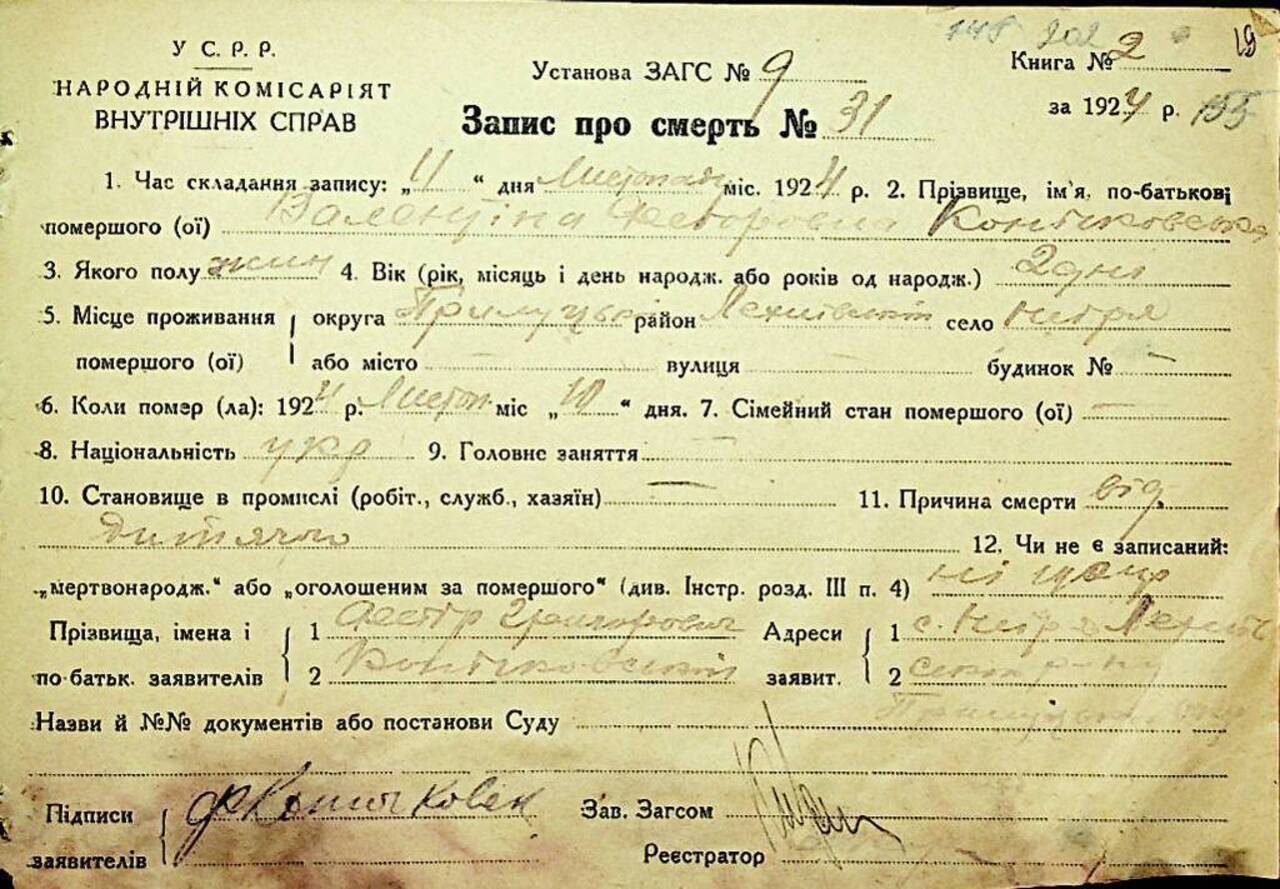 148 202 19
У С. Р. Р.
НАРОДНІЙ КОМІСАРІЯТ
ВНУТРІШНІХ СПРАВ
Установа ЗАГС № 9
Запис про смерть № 31
Книга № 2
за 1924 р. 155
1. Час складання запису: „11“ дня Листопад міс. 1924 р. 2. Прізвище, ім'я, по-батькові
помершого (ої) Валентіна Федоровна
3. Якого полу жин 4. Вік (рік, місяць і день народж. або років од народж.) 2 дні
5. Місце проживання округа Прилуцькі район село
помершого (ої) або місто — вулиця — будинок № —
6. Коли помер (ла): 1924 р. Листоп міс „10“ дня. 7. Сімейний стан помершого (ої) —
8. Національність укр 9. Головне заняття —
10. Становище в промислі (робіт., служб., хазяїн) — 11. Причина смерти від
дитячого
12. Чи не є записаний:
„мертвонародж.“ або „оголошеним за помершого“ (див. Інстр. розд. III п. 4) ні
Прізвища, імена і 1 Григорович Адреси 1 с.
по батьк. заявителів 2 заявит. 2
Назви й №№ документів або постанови Суду
Підписи Зав. Загсом
заявителів Реєстратор